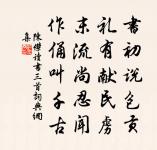 書初說包貢
禮有獻民虜
末流尚忍聞
作俑叫千古
陳傑讀書三首詞典網
集